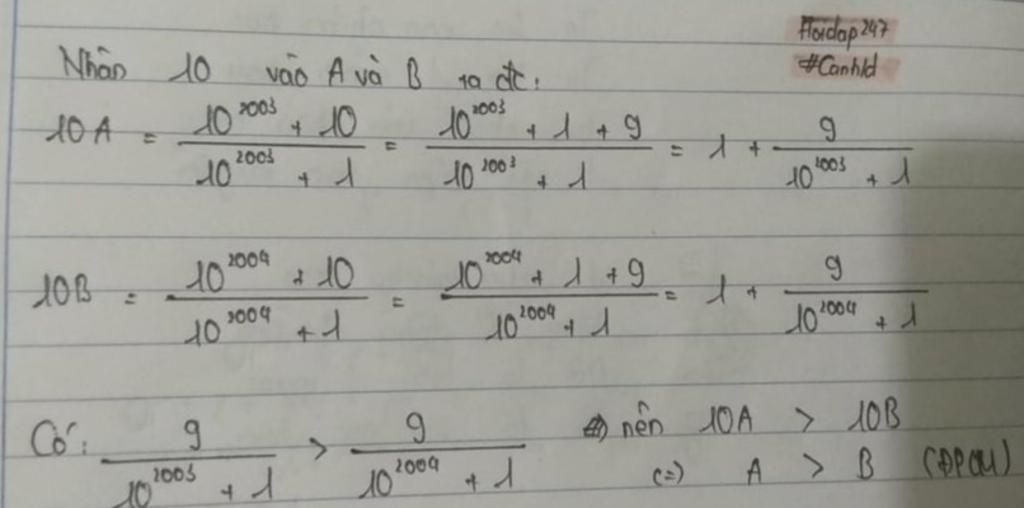 Hoidap247
#Canhld
Nhân 10 vào A và B ra đc:
10A = \frac{10^{2003} + 10}{10^{2003} + 1} = \frac{10^{2003} + 1 + 9}{10^{2003} + 1} = 1 + \frac{9}{10^{2003} + 1}
10B = \frac{10^{2004} + 10}{10^{2004} + 1} = \frac{10^{2004} + 1 + 9}{10^{2004} + 1} = 1 + \frac{9}{10^{2004} + 1}
Có: \frac{9}{10^{2003} + 1} > \frac{9}{10^{2004} + 1} nên 10A > 10B
(=) A > B (ĐPCM)